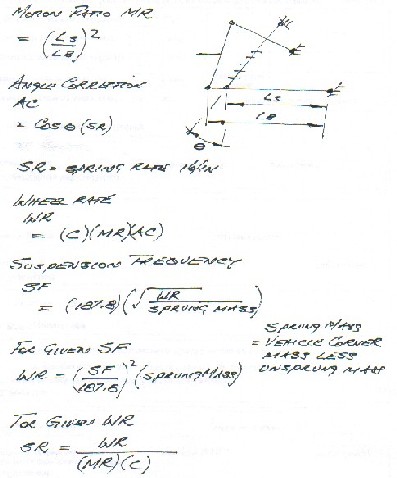 MOTION RATIO MR
= (LS/LB)²
ANGLE CORRECTION
AC
= COS θ (SR)
LS
LB
θ
SR = SPRING RATE LB/IN
WHEEL RATE
WR
= (C)(MR)(AC)
SUSPENSION FREQUENCY
SF
= (187.8)(√WR/SPRUNG MASS)
SPRUNG MASS
= VEHICLE CORNER
MASS LESS
UNSPRUNG MASS
FOR GIVEN SF
WR = (SF/187.8)² (SPRUNG MASS)
FOR GIVEN WR
SR = WR/(MR)(C)